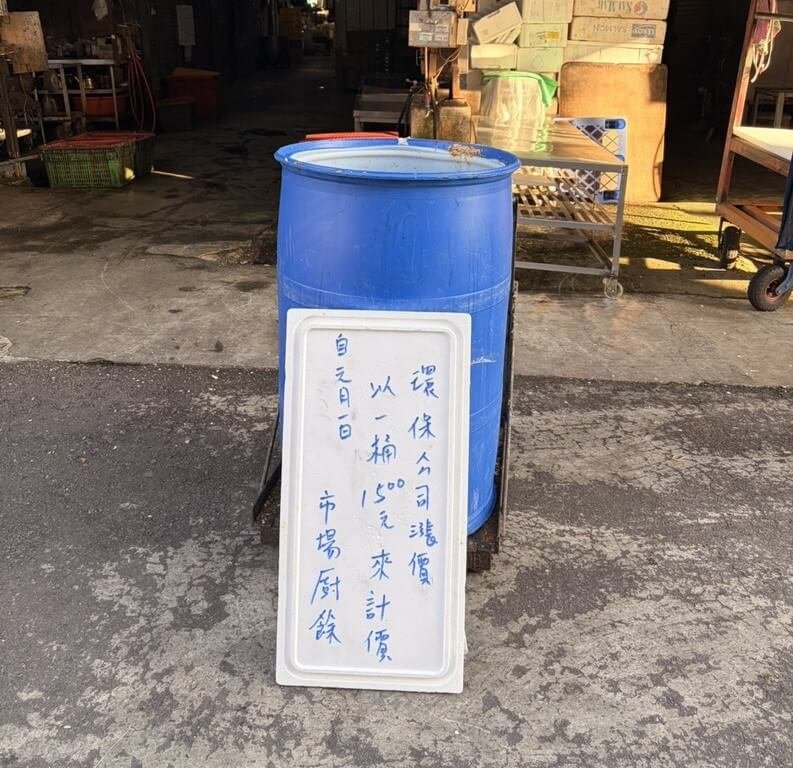 環保公司漲價
以一桶1500元來計價
自元月一日
市場廚餘
SALMON